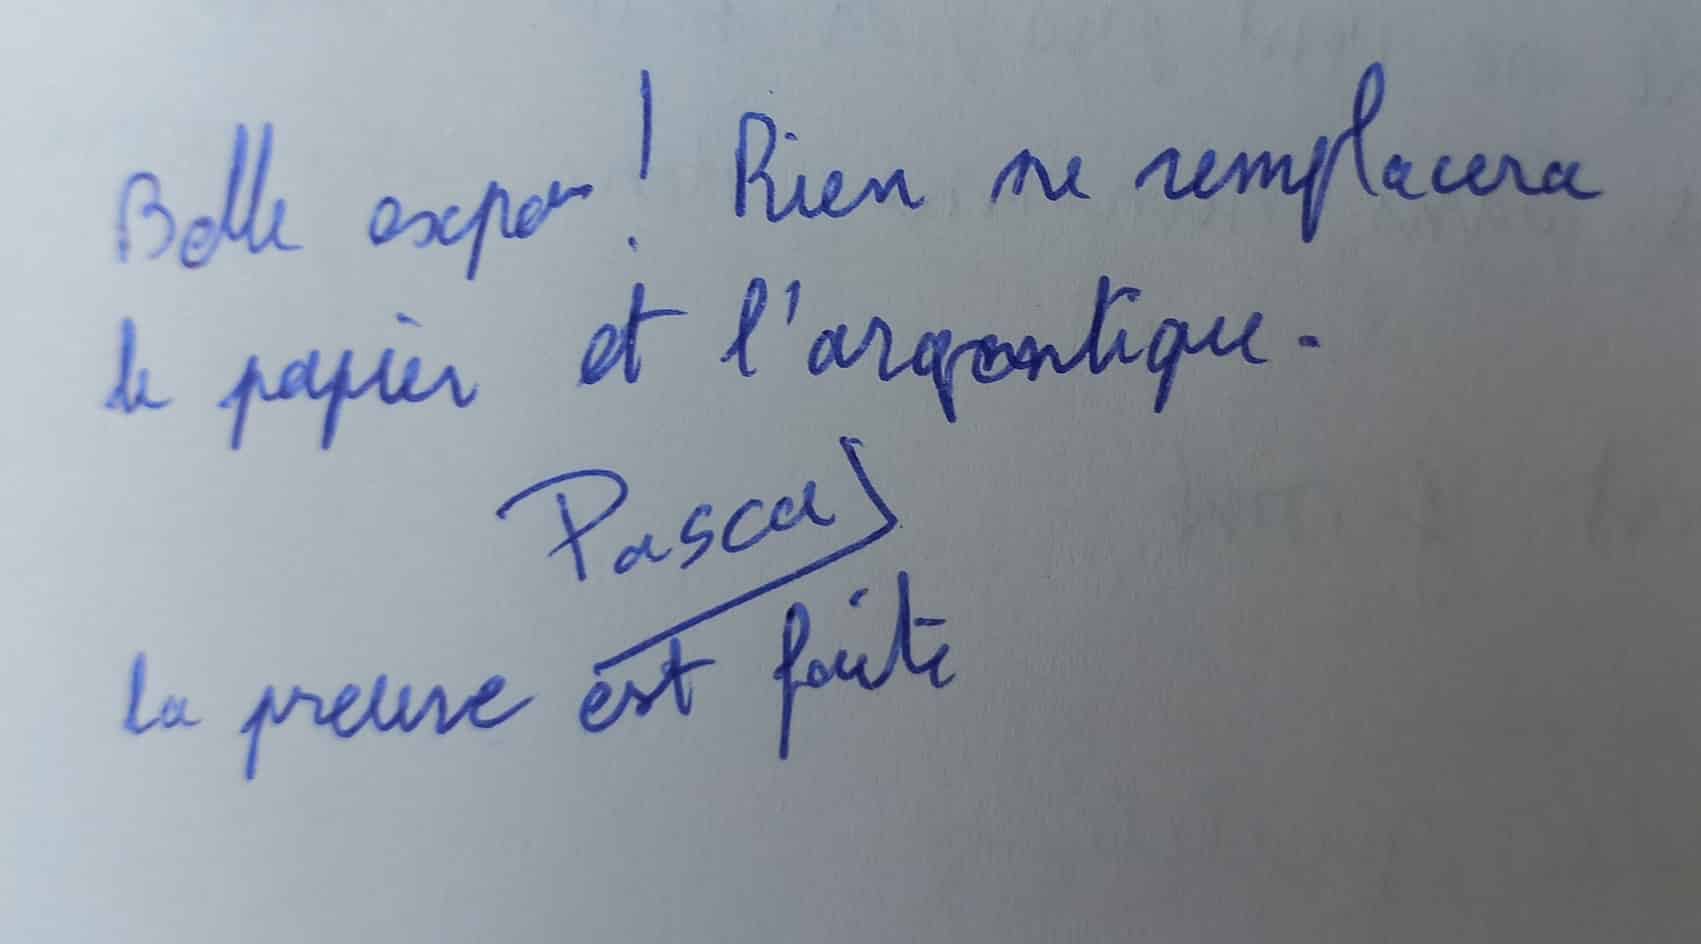 Belle expo ! Rien ne remplacera
le papier et l'argentique.
Pascal
La preuve est faite